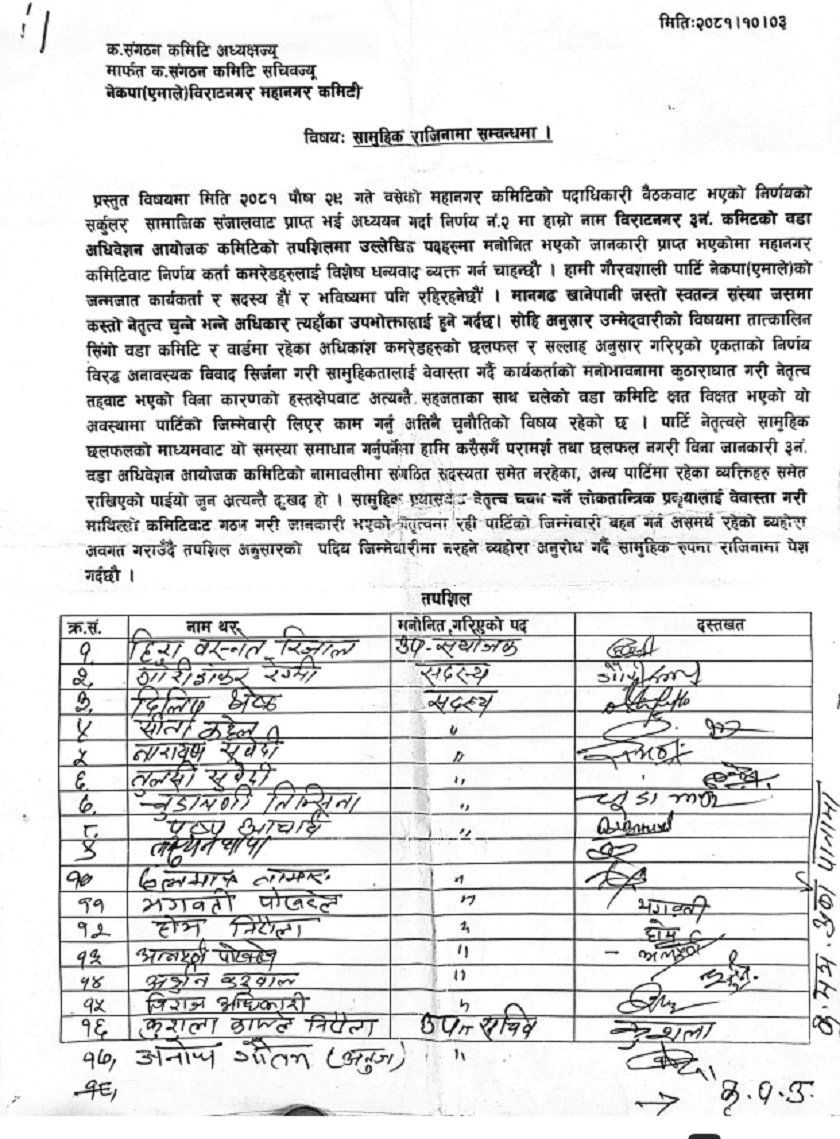 मितिः२०८१।१०।०३
क.संगठन कमिटि अध्यक्षज्यू
मार्फत क.संगठन कमिटि सचिवज्यू
नेकपा(एमाले)विराटनगर महानगर कमिटी
विषयः सामुहिक राजिनामा सम्वन्धमा ।
प्रस्तुत विषयमा मिति २०८१ पौष २९ गते वसेको महानगर कमिटिको पदाधिकारी वैठकवाट भएको निर्णयको
सर्कुलर सामाजिक संजालवाट प्राप्त भई अध्ययन गर्दा निर्णय नं.२ मा हाम्रो नाम विराटनगर ३नं. कमिटको वडा
अधिवेशन आयोजक कमिटिको तपशिलमा उल्लेखित पदहरुमा मनोनित भएको जानकारी प्राप्त भएकोमा महानगर
कमिटिवाट निर्णय कर्ता कमरेडहरुलाई विशेष धन्यवाद व्यक्त गर्न चाहन्छौ । हामी गौरवशाली पार्टि नेकपा(एमाले)को
जन्मजात कार्यकर्ता र सदस्य हौं र भविष्यमा पनि रहिरहनेछौं । मानगढ खानेपानी जस्तो स्वतन्त्र संस्था जसमा
कस्तो नेतृत्व चुन्ने भन्ने अधिकार त्यहाँका उपभोक्तालाई हुने गर्दछ। सोहि अनुसार उम्मेदवारीको विषयमा तात्कालिन
सिंगो वडा कमिटि र वार्डमा रहेका अधिकांश कमरेडहरुको छलफल र सल्लाह अनुसार गरिएको एकताको निर्णय
विरुद्ध अनावस्यक विवाद सिर्जना गरी सामुहिकतालाई वेवास्ता गर्दै कार्यकर्ताको मनोभावनामा कुठाराघात गरी नेतृत्व
तहवाट भएको विना कारणको हस्तक्षेपवाट अत्यन्तै सहजताका साथ चलेको वडा कमिटि क्षत विक्षत भएको यो
अवस्थामा पार्टिको जिम्मेवारी लिएर काम गर्नु अतिनै चुनौतिको विषय रहेको छ । पार्टि नेतृत्वले सामुहिक
छलफलको माध्यमवाट यो समस्या समाधान गर्नुपर्नेमा हामि कसैसगँ परामर्श तथा छलफल नगरी विना जानकारी ३नं.
वडा अधिवेशन आयोजक कमिटिको नामावलीमा संगठित सदस्यता समेत नरहेका, अन्य पार्टिमा रहेका व्यक्तिहरु समेत
राखिएको पाईयो जुन अत्यन्तै दुःखद हो । सामुहिक प्रयासवाट नेतृत्व चयन गर्ने लोकतान्त्रिक प्रकृयालाई वेवास्ता गरी
माथिल्लो कमिटिवाट गठन गरी जानकारी भएको नेतृत्वमा रही पार्टिको जिम्मेवारी वहन गर्न असमर्थ रहेको व्यहोरा
अवगत गराउँदै तपशिल अनुसारको पदिय जिम्मेवारीमा नरहने व्यहोरा अनुरोध गर्दै सामुहिक रुपमा राजिनामा पेश
गर्दछौ ।
तपशिल
क्र.सं. नाम थर मनोनित गरिएको पद दस्तखत
१. हिरा वस्नेत रिजाल उप-संयोजक
२. गौरीशंकर रेग्मी सदस्य
३. दिलिप श्रेष्ठ सदस्य
४ सीता कंडेल "
५ नारायण सुवेदी "
६. तुलसी सुवेदी "
७. चुडामणी तिम्सिना "
८. पुष्प आचार्य "
९ थापा
१० "
११ भगवती पोखरेल " भगवती
१२ होम निरौला " होम
१३ पोखरेल "
१४ अर्जुन "
१५ विराज अधिकारी "
१६ कुशला काफ्ले निरौला उप सचिव कुशला
१७, अनोज गौतम (अनुज) "
१८,
→ कृ.प.उ.